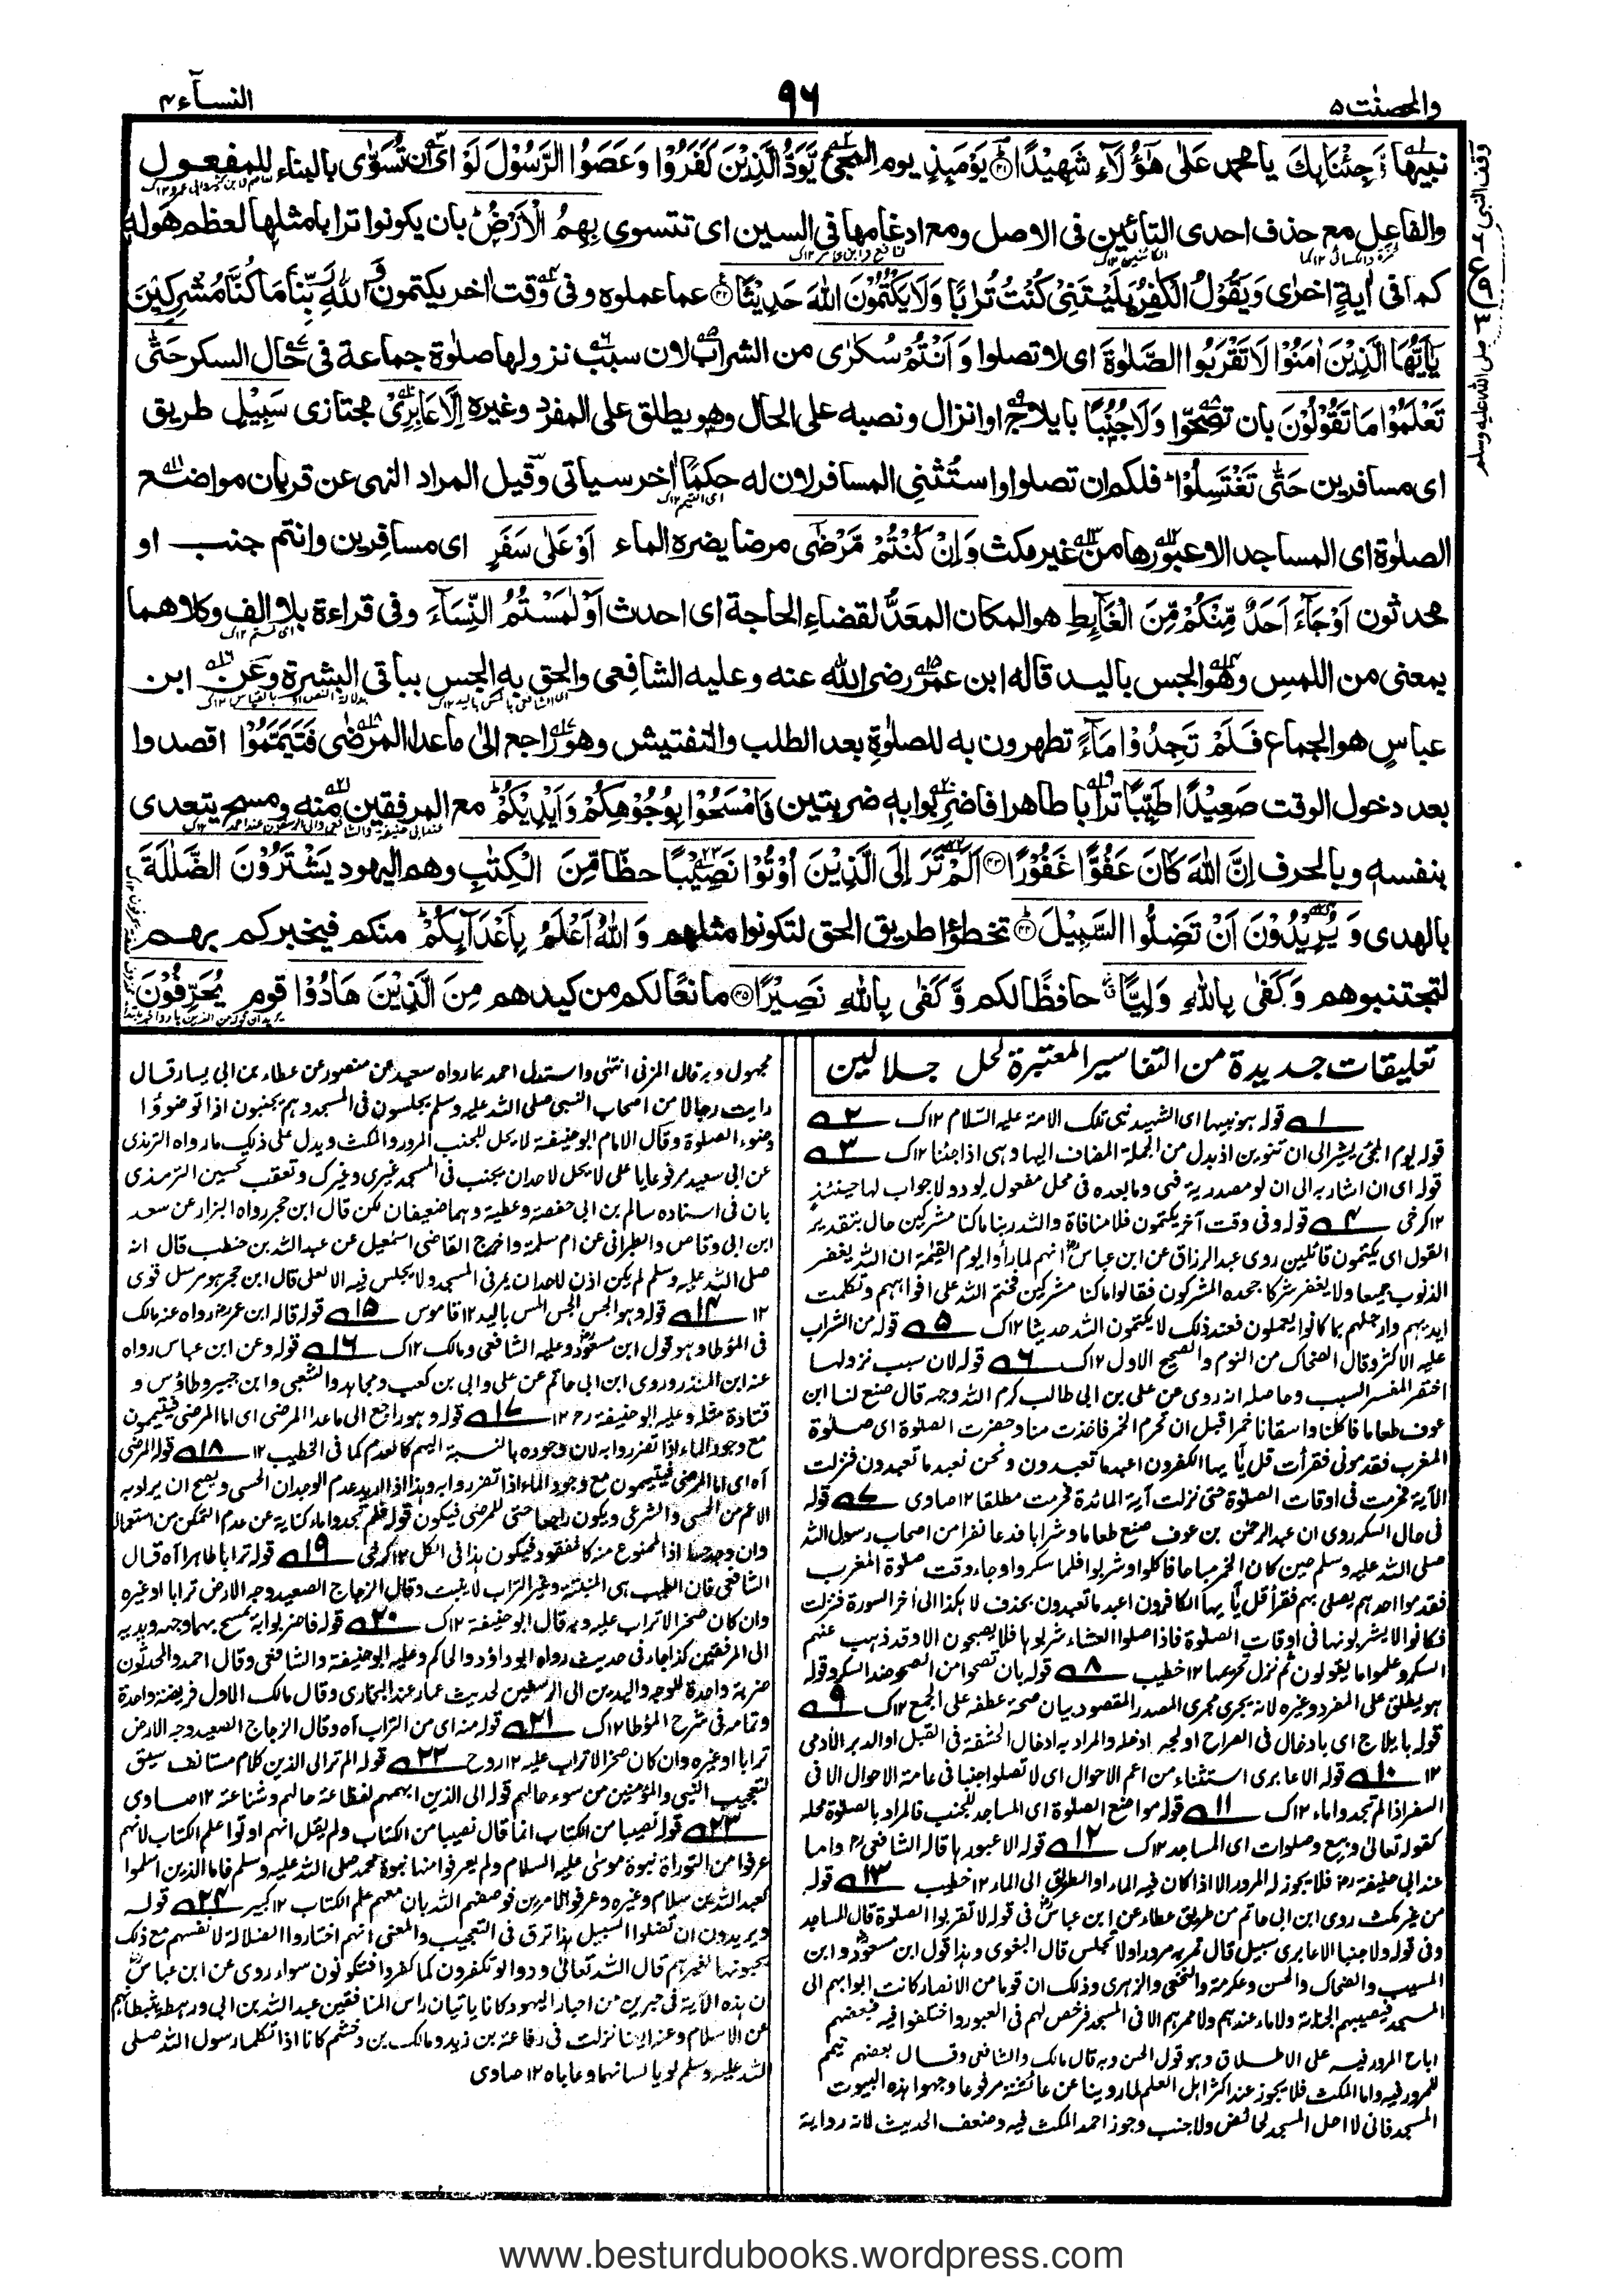 والمحصنٰت۵
۹۶
النسآء۴
نبيها وَّجِئْنَا بِكَ يا محمد عَلٰى هٰٓؤُلَآءِ شَهِيْدًا ۝۴۱ يَوْمَئِذٍ يوم المجئ يَّوَدُّ الَّذِيْنَ كَفَرُوْا وَعَصَوُا الرَّسُوْلَ لَوْ اى ان تُسَوّٰى بالبناء للمفعول
والفاعل مع حذف احدى التائين فى الاصل ومع ادغامها فى السين اى تتسوي بِهِمُ الْاَرْضُ ؕ بان يكونوا ترابا مثلها لعظم هوله
كما فى اية اخرٰى وَيَقُوْلُ الْكٰفِرُ يٰلَيْتَنِىْ كُنْتُ تُرَابًا وَلَا يَكْتُمُوْنَ اللّٰهَ حَدِيْثًا ۝۴۲ عما عملوه وفى وقت اخر يكتمون وَاللّٰهِ رَبِّنَا مَا كُنَّا مُشْرِكِيْنَ
يٰٓاَيُّهَا الَّذِيْنَ اٰمَنُوْا لَا تَقْرَبُوا الصَّلٰوةَ اى لا تصلوا وَاَنْتُمْ سُكٰرٰى من الشراب لان سبب نزولها صلوة جماعة فى حال السكر حَتّٰى
تَعْلَمُوْا مَا تَقُوْلُوْنَ بان تصحوا وَلَا جُنُبًا بايلاج او انزال ونصبه على الحال وهو يطلق على المفرد وغيره اِلَّا عَابِرِىْ مجتازى سَبِيْلٍ طريق
اى مسافرين حَتّٰى تَغْتَسِلُوْا ؕ فلكم ان تصلوا واستُثنى المسافر لان له حكمًا اخر سياتى وقيل المراد النهى عن قربان مواضع
الصلوة اى المساجد الا عبورها من غير مكث وَاِنْ كُنْتُمْ مَّرْضٰٓى مرضا يضره الماء اَوْ عَلٰى سَفَرٍ اى مسافرين وانتم جنب او
محدثون اَوْ جَآءَ اَحَدٌ مِّنْكُمْ مِّنَ الْغَآئِطِ هو المكان المعدّ لقضاء الحاجة اى احدث اَوْ لٰمَسْتُمُ النِّسَآءَ وفى قراءة بلا الف وكلاهما
بمعنى من اللمس وهو الجس باليد قاله ابن عمر رضى الله عنه وعليه الشافعى والحق به الجس بباقى البشرة وعن ابن
عباس هو الجماع فَلَمْ تَجِدُوْا مَآءً تطهرون به للصلوة بعد الطلب والتفتيش وهو راجع الى ماعدا المرضى فَتَيَمَّمُوْا اقصدوا
بعد دخول الوقت صَعِيْدًا طَيِّبًا ترابا طاهرا فاضربوا به ضربتين فَامْسَحُوْا بِوُجُوْهِكُمْ وَاَيْدِيْكُمْ ؕ مع المرفقين منه ومسح يتعدى
بنفسه وبالحرف اِنَّ اللّٰهَ كَانَ عَفُوًّا غَفُوْرًا ۝۴۳ اَلَمْ تَرَ اِلَى الَّذِيْنَ اُوْتُوْا نَصِيْبًا حظّا مِّنَ الْكِتٰبِ وهم اليهود يَشْتَرُوْنَ الضَّلٰلَةَ
بالهدى وَيُرِيْدُوْنَ اَنْ تَضِلُّوا السَّبِيْلَ ۝۴۴ تخطؤا طريق الحق لتكونوا مثلهم وَاللّٰهُ اَعْلَمُ بِاَعْدَآئِكُمْ ؕ منكم فيخبركم بهم
لتجتنبوهم وَكَفٰى بِاللّٰهِ وَلِيًّا حافظًا لكم وَّكَفٰى بِاللّٰهِ نَصِيْرًا ۝۴۵ مانعًا لكم من كيدهم مِنَ الَّذِيْنَ هَادُوْا قوم يُحَرِّفُوْنَ
تعليقات جديدة من التفاسير المعتبرة لحل جلالين
۱ قوله هو نبيها اى الشهيد نبى تلك الامة عليه السلام ۱۲ك ۲
قوله يوم المجئ يشير الى ان تنوين اذ بدل من الجملة المضاف اليها وهى اذا جئنا ۱۲ك ۳
قوله اى ان اشار به الى ان لو مصدرية فهى وما بعده فى محل مفعول يود ولا جواب لها حينئذ
۱۲كرخى ۴ قوله وفى وقت آخر يكتمون فلا منافاة والله ربنا ما كنا مشركين حال بتقدير
القول اى يكتمون قائلين روى عبد الرزاق عن ابن عباس انهم لما رأوا يوم القيمة ان الله يغفر
الذنوب جميعا ولا يغفر شركا جحده المشركون فقالوا ما كنا مشركين فختم الله على افواههم وتكلمت
ايديهم وارجلهم بما كانوا يعملون فعند ذلك لا يكتمون الله حديثا ۱۲ك ۵ قوله من الشراب
عليه الاكثر وقال الضحاك من النوم والصحيح الاول ۱۲ك ۶ قوله لان سبب نزولها
اختصر المفسر السبب وحاصله انه روى عن على بن ابى طالب كرم الله وجهه قال صنع لنا ابن
عوف طعاما فاكلنا واسقانا خمرا قبل ان تحرم الخمر فاخذت منا وحضرت الصلوة اى صلوة
المغرب فقدمونى فقرأت قل يا يها الكفرون اعبد ما تعبدون ونحن نعبد ما تعبدون فنزلت
الآية فحرمت فى اوقات الصلوة حتى نزلت آية المائدة فحرمت مطلقا ۱۲ صاوى ۷ قوله
فى حال السكر روى ان عبد الرحمن بن عوف صنع طعاما وشرابا فدعا نفرا من اصحاب رسول الله
صلى الله عليه وسلم حين كان الخمر مباحا فاكلوا وشربوا فلما سكروا وجاء وقت صلوة المغرب
فقدموا احدهم يصلى بهم فقرأ قل يا يها الكافرون اعبد ما تعبدون بحذف لا هكذا الى أخر السورة فنزلت
فكانوا لا يشربونها فى اوقات الصلوة فاذا صلوا العشاء شربوها فلا يصبحون الا وقد ذهب عنهم
السكر وعلموا ما يقولون ثم نزل تحريمها ۱۲ خطيب ۸ قوله بان تصحوا من الصحو ضد السكر وقوله
هو يطلق على المفرد وغيره لانه يجرى مجرى المصدر المقصود بيان صحة عطفه على الجمع ۱۲ك ۹
قوله بايلاج اى بادخال فى الصراح اولجه ادخله والمراد به ادخال الحشفة فى القبل او الدبر الآدمى
۱۲ ۱۰ قوله الا عابرى استثناء من اعم الاحوال اى لا تصلوا جنبا فى عامة الاحوال الا فى
السفر اذا لم تجدوا ماء ۱۲ك ۱۱ قوله مواضع الصلوة اى المساجد للجنب فالمراد بالصلوة محله
كقوله تعالى وبيع وصلوات اى المساجد ۱۲ك ۱۲ قوله الا عبورها قاله الشافعى رح واما
عند ابى حنيفة رح فلا يجوز له المرور الا اذا كان فيه الماء او الطريق الى الماء ۱۲ خطيب ۱۳ قوله
من غير مكث روى ابن ابى حاتم من طريق عطاء عن ابن عباس فى قوله لا تقربوا الصلوة قال المساجد
وفى قوله ولا جنبا الا عابرى سبيل قال تمر به مرورا ولا تجلس قال البغوى وهذا قول ابن مسعود وابن
المسيب والضحاك والحسن وعكرمة والنخعى والزهرى وذلك ان قوما من الانصار كانت ابوابهم الى
المسجد فيصيبهم الجنابة ولا ماء عندهم ولا ممر لهم الا فى المسجد فرخص لهم فى العبور واختلفوا فيه فبعضهم
اباح المرور فيه على الاطلاق وهو قول الحسن وبه قال مالك والشافعى وقال بعضهم يتيمم
للمرور فيه واما المكث فلا يجوز عند اكثر اهل العلم لما روينا عن عائشة مرفوعا وجهوا هذه البيوت
المسجد فانى لا احل المسجد لحائض ولا جنب وجوز احمد المكث فيه وضعف الحديث لانه رواية
مجهول وبه قال المزنى انتهى واستدل احمد بما رواه سعيد عن منصور عن عطاء بن ابى يسار قال
رايت رجالا من اصحاب النبى صلى الله عليه وسلم يجلسون فى المسجد وهم يجنبون اذا توضؤا
وضوء الصلوة وقال الامام ابو حنيفة لا يحل للجنب المرور والمكث ويدل على ذلك ما رواه الترمذى
عن ابى سعيد مرفوعا يا على لا يحل لاحد ان يجنب فى المسجد غيرى وغيرك وتعقب تحسين الترمذى
بان فى اسناده سالم بن ابى حفصة وعطية وهما ضعيفان لكن قال ابن حجر رواه البزار عن سعد
ابن ابى وقاص والطبرانى عن ام سلمة واخرج القاضى اسمعيل عن عبد الله بن حنطب قال انه
صلى الله عليه وسلم لم يكن اذن لاحد ان يمر فى المسجد ولا يجلس فيه الا لعلى قال ابن حجر هو مرسل قوى
۱۲ ۱۴ قوله وهو الجس الجس المس باليد ۱۲ قاموس ۱۵ قوله قاله ابن عمر رواه عنه مالك
فى المؤطا وهو قول ابن مسعود وعليه الشافعى ومالك ۱۲ك ۱۶ قوله وعن ابن عباس رواه
عنه ابن المنذر وروى ابن ابى حاتم عن على وابى بن كعب ومجاهد والشعبى وابن جبير وطاؤس و
قتادة مثله وعليه ابو حنيفة رح ۱۲ ۱۷ قوله وهو راجع الى ماعدا المرضى اى اما المرضى فيتيممون
مع وجود الماء اذا تضرروا به لان وجوده بالنسبة اليهم كالعدم كما فى الخطيب ۱۲ ۱۸ قوله المرضى
آه اى اما المرضى فيتيممون مع وجود الماء اذا تضرروا به وهذا اذا اريد عدم الوجدان الحسى ويصح ان يراد به
الاعم من الحسى والشرعى ويكون راجعا حتى للمرضى فيكون قوله فلم تجدوا ماء كناية عن عدم التمكن من استعماله
وان وجد حسا اذ الممنوع منه كالمفقود فيكون هذا فى الكل ۱۲ كرخى ۱۹ قوله ترابا طاهرا آه قال
الشافعى فان الطيب هى المنبتة وغير التراب لا ينبت وقال الزجاج الصعيد وجه الارض ترابا او غيره
وان كان صخر الا تراب عليه وبه قال ابو حنيفة ۱۲ك ۲۰ قوله فاضربوا به يمسح بهما وجهه ويديه
الى المرفقين كذا جاء فى حديث رواه ابو داؤد والحاكم وعليه ابو حنيفة والشافعى وقال احمد والمحدثون
ضربة واحدة للوجه واليدين الى الرسغين لحديث عمار عند البخارى وقال مالك الاول فريضة واحدة
وتمامه فى شرح المؤطا ۱۲ك ۲۱ قوله منه اى من التراب آه وقال الزجاج الصعيد وجه الارض
ترابا او غيره وان كان صخر الا تراب عليه ۱۲ روح ۲۲ قوله الم تر الى الذين كلام مستانف سيق
لتعجيب النبى والمؤمنين من سوء حالهم قوله الى الذين ابهمهم لفظاعة حالهم وشناعة ۱۲ صاوى
۲۳ قوله نصيبا من الكتاب انما قال نصيبا من الكتاب ولم يقل انهم اوتوا علم الكتاب لانهم
عرفوا من التوراة نبوة موسى عليه السلام ولم يعرفوا منها نبوة محمد صلى الله عليه وسلم فاما الذين اسلموا
كعبد الله بن سلام وغيره وعرفوا الامرين فوصفهم الله بان معهم علم الكتاب ۱۲ كبير ۲۴ قوله
ويريدون ان تضلوا السبيل هذا ترق فى التعجيب والمعنى انهم اختاروا الضلالة لانفسهم مع ذلك
يحبونها لغيرهم قال الله تعالى ودوا لو تكفرون كما كفروا فتكونون سواء روى عن ابن عباس
ان هذه الآية فى حبرين من احبار اليهود كانا ياتيان راس المنافقين عبد الله بن ابى ورهطه يثبطانهم
عن الاسلام وعنه انها نزلت فى رفاعة بن زيد ومالك بن دخشم كانا اذا تكلم رسول الله صلى
الله عليه وسلم لويا لسانهما وعاباه ۱۲ صاوى
www.besturdubooks.wordpress.com